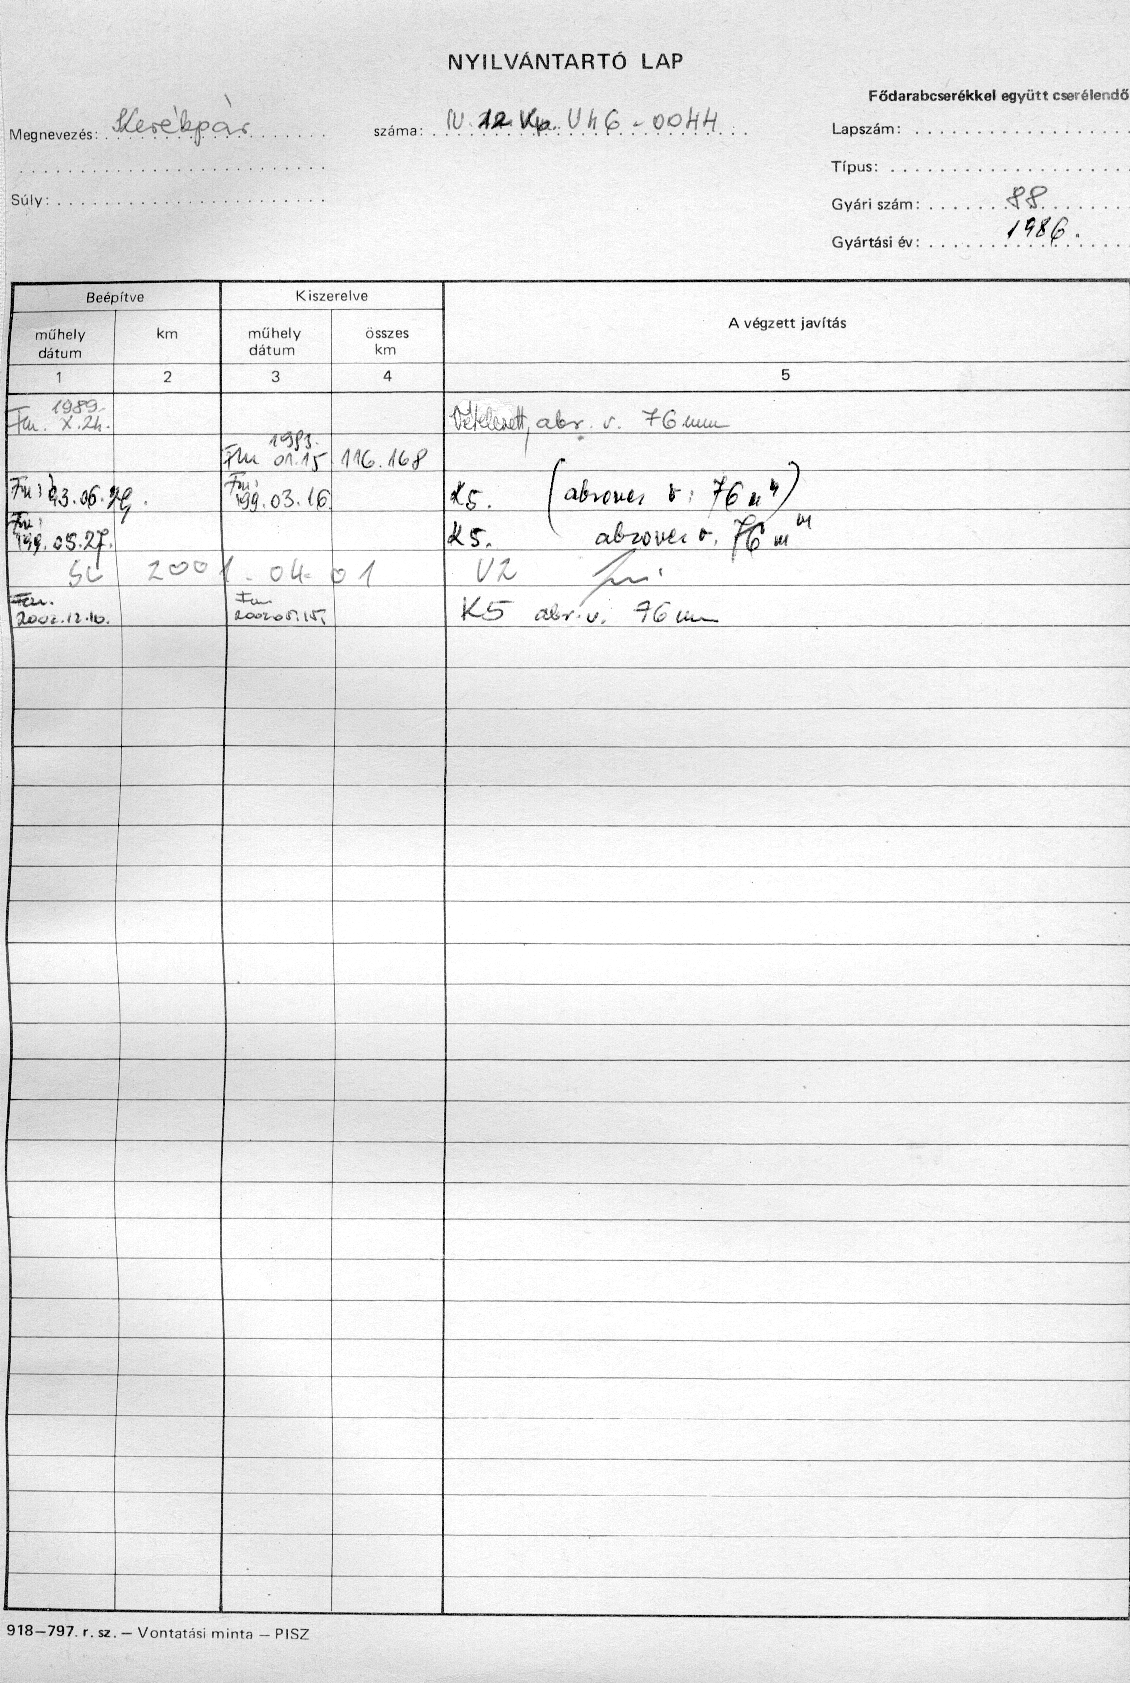 NYILVÁNTARTÓ LAP
Fődarabcserékkel együtt cserélendő
Megnevezés: Kerékpár
száma: 12 Kp. VhG-0044
Lapszám:
Típus:
Súly:
Gyári szám: 88
Gyártási év: 1986.
Beépítve Kiszerelve A végzett javítás
műhely dátum km műhely dátum összes km
1 2 3 4 5
1989.
Fm. X.24. abr. v. 76 mm
1993.
Fm 01.15 116.168
Fm: 93.06. Fm: 99.03.16 K5. (abroncs v: 76 mm)
Fm:
99.05.27. K5. abroncs v. 76 mm
SL 2001.04.01 V2
Fm. Fm
2002.12.10. 2002.05.15. K5 abr. v. 76 mm
918–797. r. sz. – Vontatási minta – PISZ